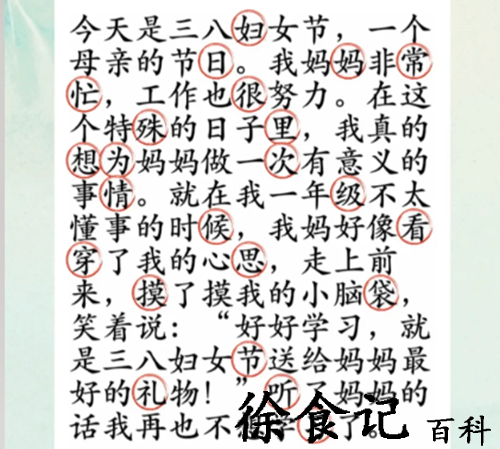 今天是三八妇女节，一个
母亲的节日。我妈妈非常
忙，工作也很努力。在这
个特殊的日子里，我真的
想为妈妈做一次有意义的
事情。就在我一年级不太
懂事的时候，我妈好像看
穿了我的心思，走上前
来，摸了摸我的小脑袋，
笑着说：“好好学习，就
是三八妇女节送给妈妈最
好的礼物！”听了妈妈的
话我再也不 学 了。
徐食记 百科